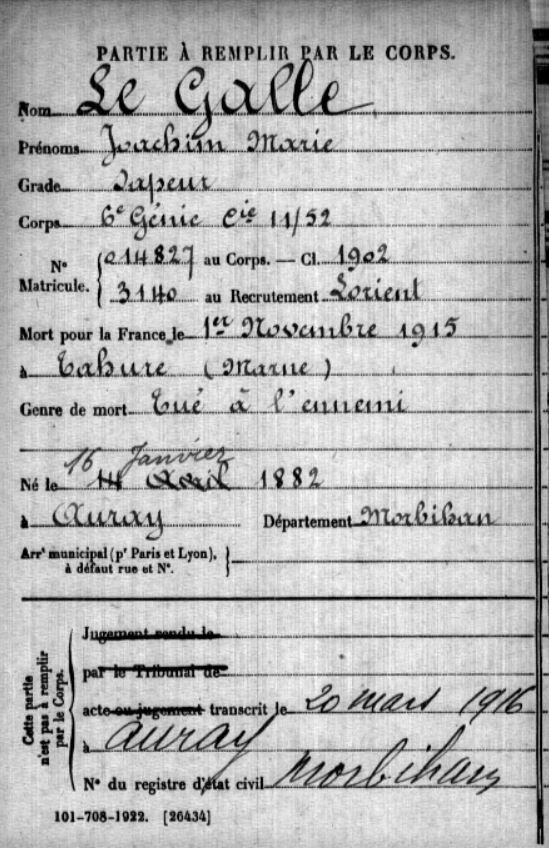 PARTIE À REMPLIR PAR LE CORPS.
Nom Le Galle
Prénoms Joachim Marie
Grade Sapeur
Corps 6e Génie Cie 11/52
N° Matricule. { 014827 au Corps. — Cl. 1902
3140 au Recrutement Lorient
Mort pour la France le 1er Novembre 1915
à Tahure (Marne)
Genre de mort Tué à l'ennemi
16 Janvier
Né le 14 Avril 1882
à Auray Département Morbihan
Arrt municipal (pr Paris et Lyon), à défaut rue et N°. }
Cette partie n'est pas à remplir par le Corps.
Jugement rendu le
par le Tribunal de
acte ou jugement transcrit le 20 mars 1916
à Auray
N° du registre d'état civil Morbihan
101-708-1922. [26434]